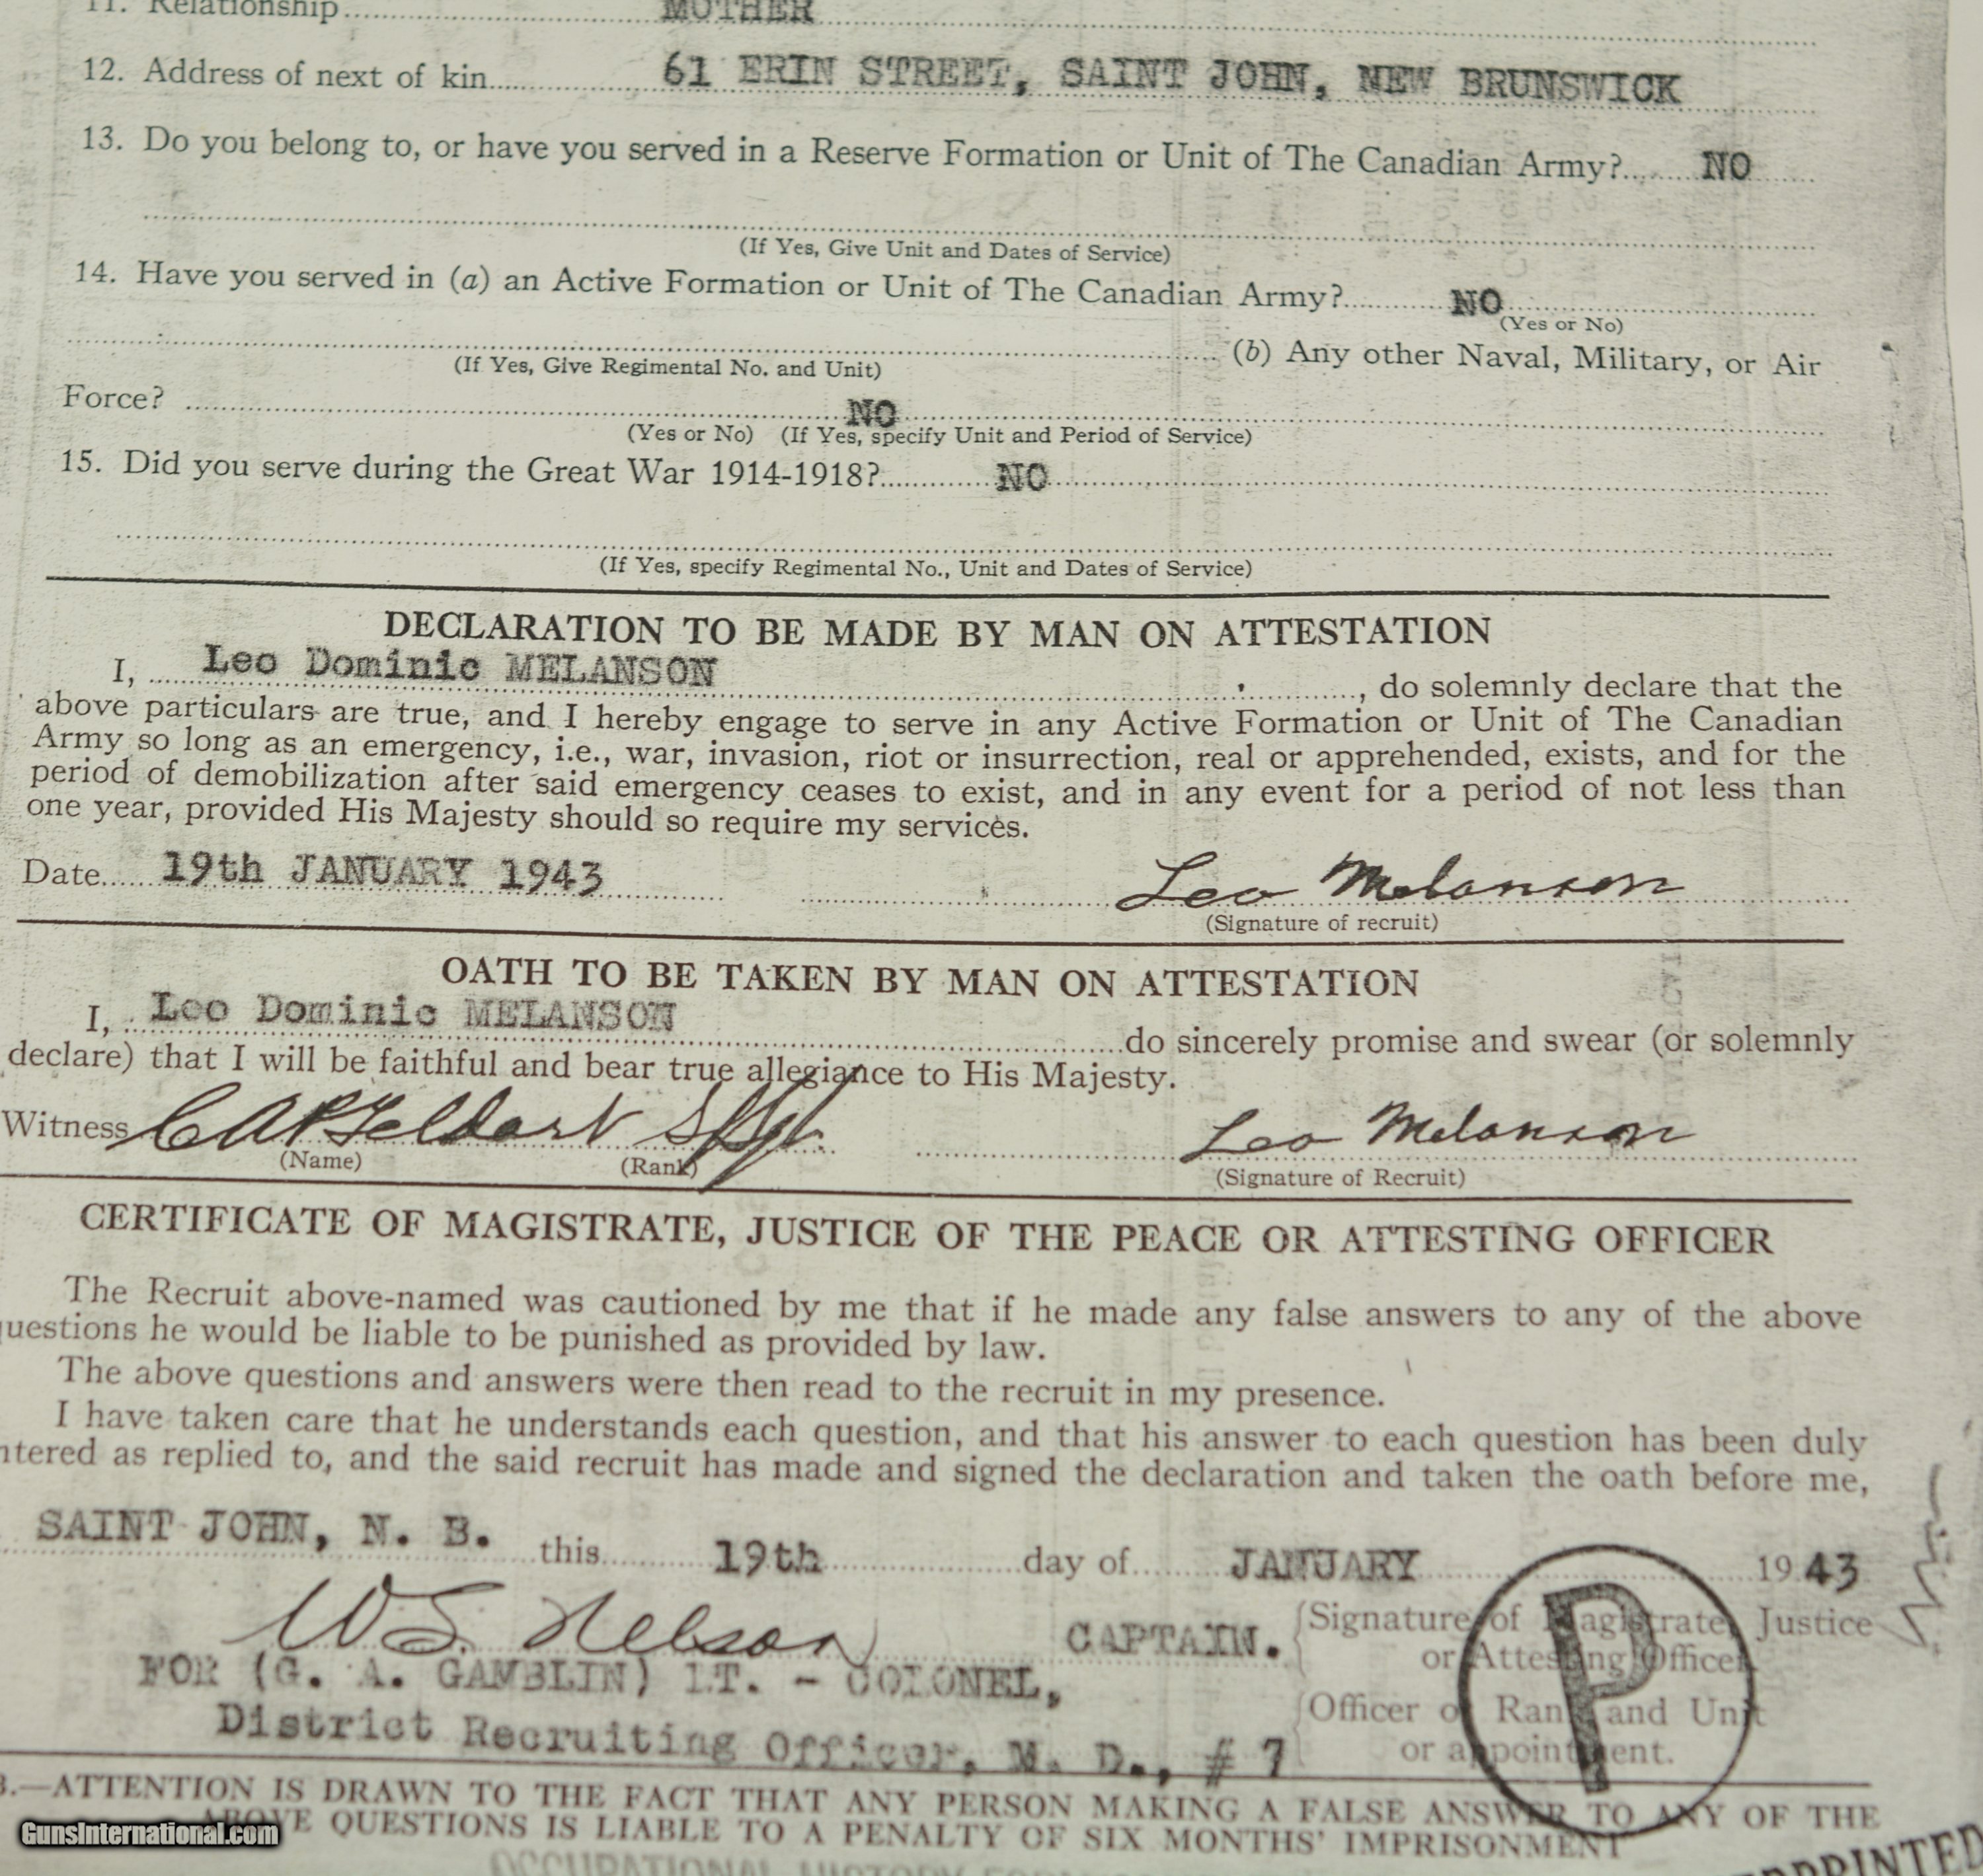 11. Relationship MOTHER
12. Address of next of kin 61 ERIN STREET, SAINT JOHN, NEW BRUNSWICK
13. Do you belong to, or have you served in a Reserve Formation or Unit of The Canadian Army? NO
(If Yes, Give Unit and Dates of Service)
14. Have you served in (a) an Active Formation or Unit of The Canadian Army? NO
(Yes or No)
(b) Any other Naval, Military, or Air
(If Yes, Give Regimental No. and Unit)
Force? NO
(Yes or No) (If Yes, specify Unit and Period of Service)
15. Did you serve during the Great War 1914-1918? NO
(If Yes, specify Regimental No., Unit and Dates of Service)
DECLARATION TO BE MADE BY MAN ON ATTESTATION
I, Leo Dominic MELANSON, do solemnly declare that the
above particulars are true, and I hereby engage to serve in any Active Formation or Unit of The Canadian
Army so long as an emergency, i.e., war, invasion, riot or insurrection, real or apprehended, exists, and for the
period of demobilization after said emergency ceases to exist, and in any event for a period of not less than
one year, provided His Majesty should so require my services.
Date 19th JANUARY 1943 Leo Melanson
(Signature of recruit)
OATH TO BE TAKEN BY MAN ON ATTESTATION
I, Leo Dominic MELANSON do sincerely promise and swear (or solemnly
declare) that I will be faithful and bear true allegiance to His Majesty.
Witness C A P Geldart S/Sgt. Leo Melanson
(Name) (Rank) (Signature of Recruit)
CERTIFICATE OF MAGISTRATE, JUSTICE OF THE PEACE OR ATTESTING OFFICER
The Recruit above-named was cautioned by me that if he made any false answers to any of the above
uestions he would be liable to be punished as provided by law.
The above questions and answers were then read to the recruit in my presence.
I have taken care that he understands each question, and that his answer to each question has been duly
ntered as replied to, and the said recruit has made and signed the declaration and taken the oath before me,
SAINT JOHN, N. B. this 19th day of JANUARY 1943
W S. Nelson CAPTAIN. Signature of Magistrate, Justice
or Attesting Officer
FOR (G. A. GAMBLIN) LT. - COLONEL,
Officer of Rank and Unit
District Recruiting Officer, M. D., # 7 or appointment.
P
B.—ATTENTION IS DRAWN TO THE FACT THAT ANY PERSON MAKING A FALSE ANSWER TO ANY OF THE
ABOVE QUESTIONS IS LIABLE TO A PENALTY OF SIX MONTHS' IMPRISONMENT
GunsInternational.com
OCCUPATIONAL HISTORY FORM